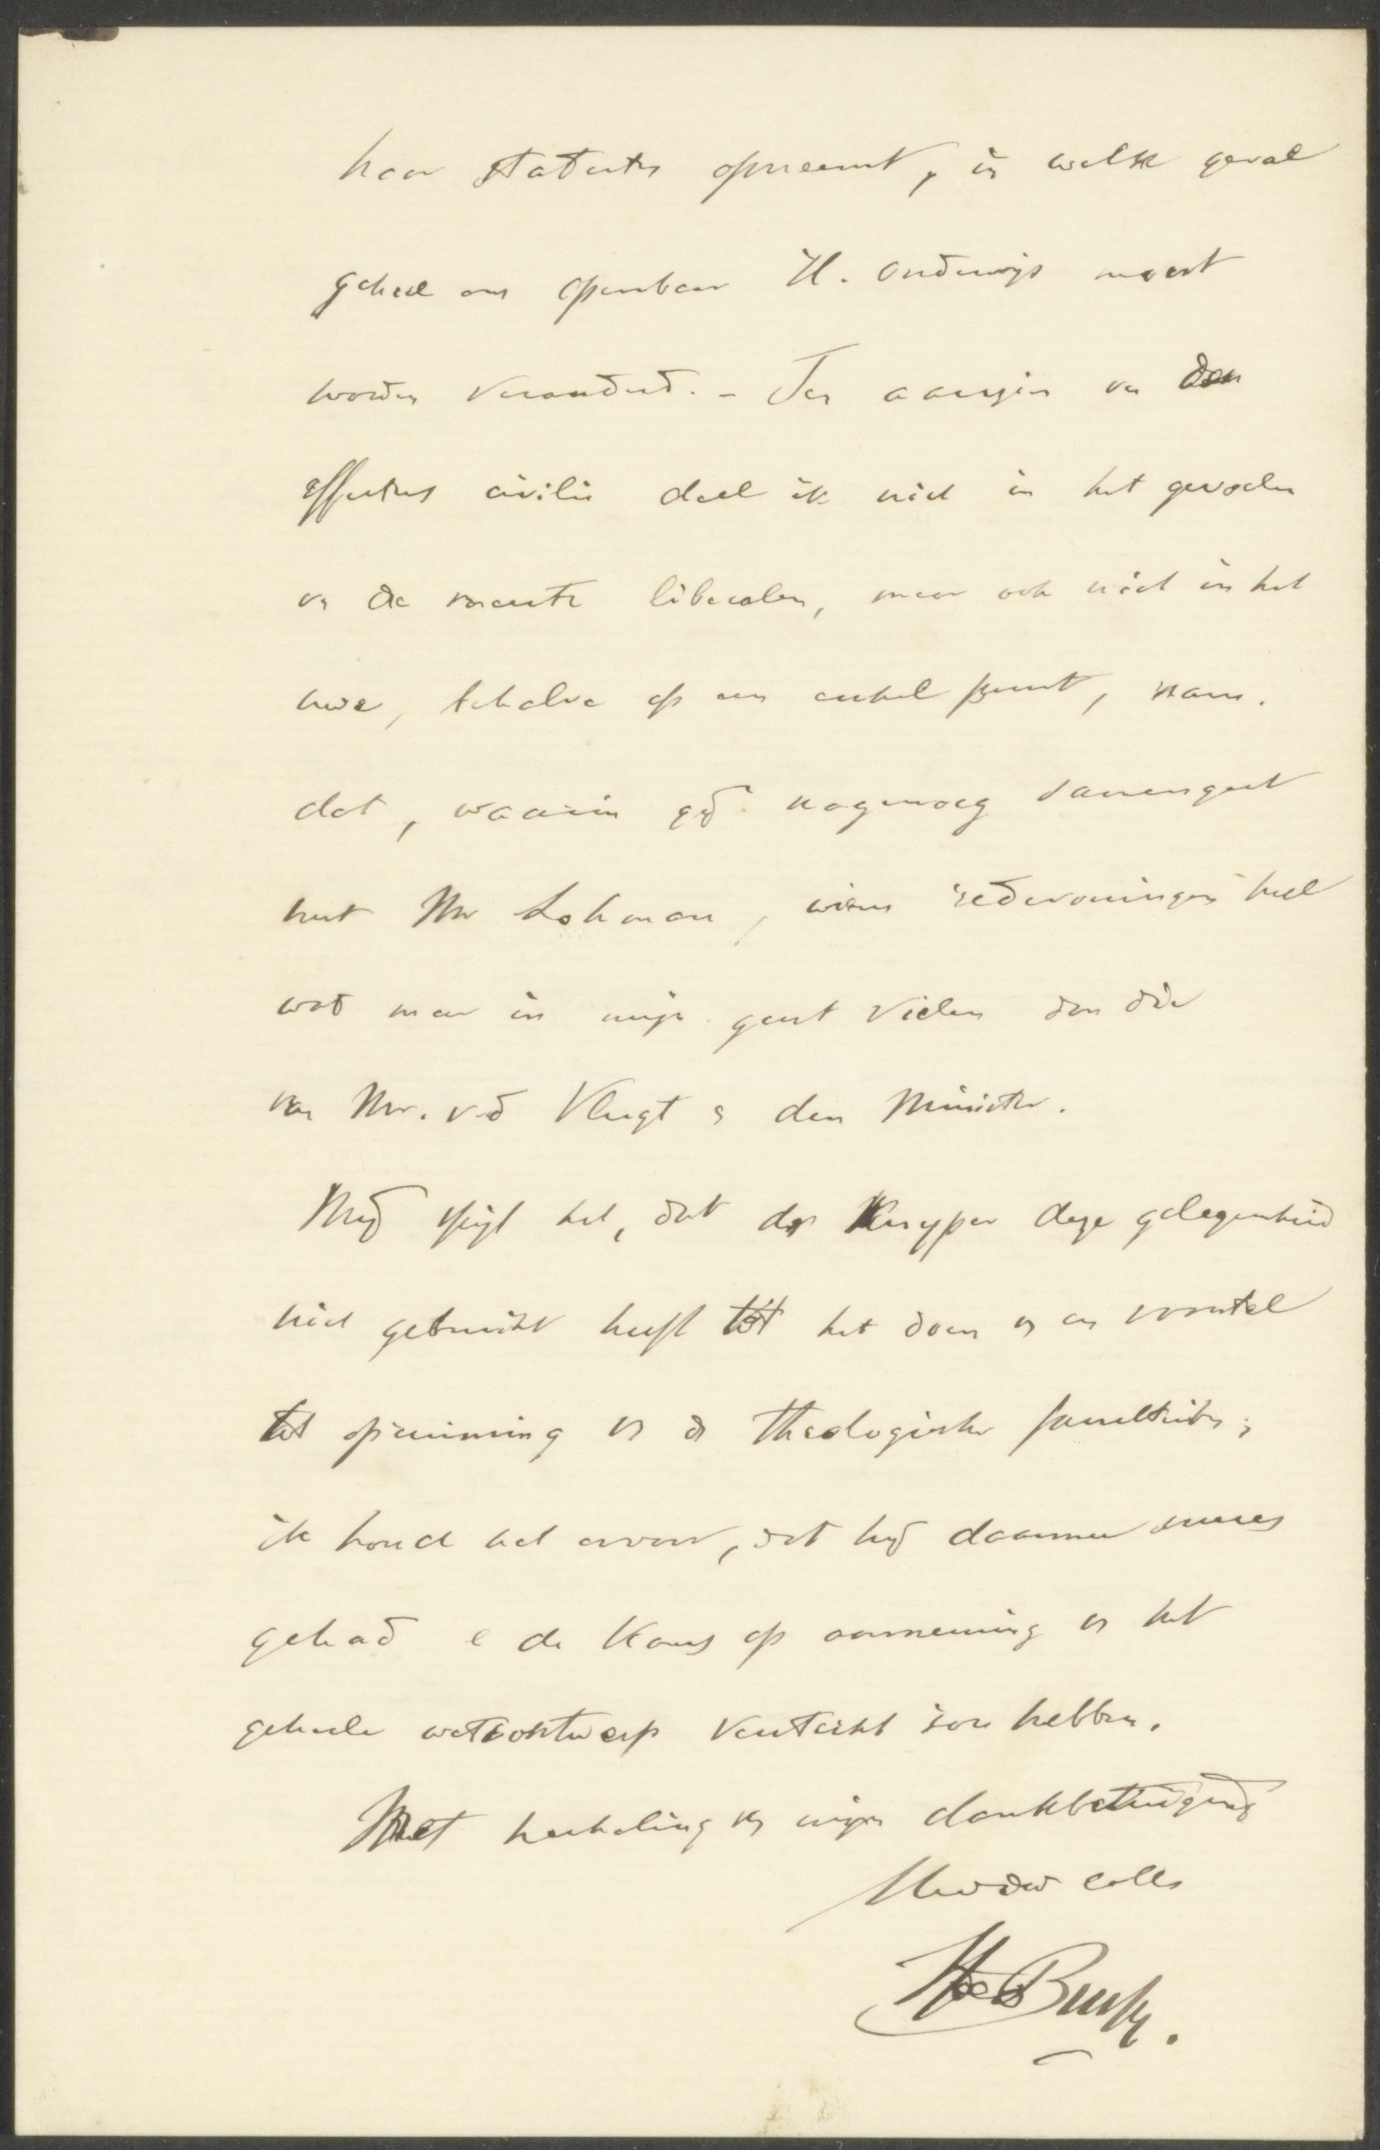 haar statuten opneemt, in welk geval
geheel ons openbaar H. onderwijs moest
worden veranderd. - Ten aanzien van den
effectus civilis deel ik niet in het gevoelen
van de meeste liberalen, maar ook niet in het
uwe, behalve op een enkel punt, nam.
dat, waarin gij nagenoeg samengaat
met Mr Lohman, wiens redeneeringen heel
wat meer in mijn geest vielen dan die
van Mr. v.d Vlugt & den Minister.
Mij spijt het, dat dr Kuyper deze gelegenheid
niet gebruikt heeft tot het doen van een voorstel
tot opruiming van de theologische faculteiten;
ik houd het ervoor, dat hij daarmee succes
gehad & de kans op aanneming van het
geheele wetsontwerp versterkt zou hebben.
Met herhaling van mijn dankbetuiging
Uwdw coll